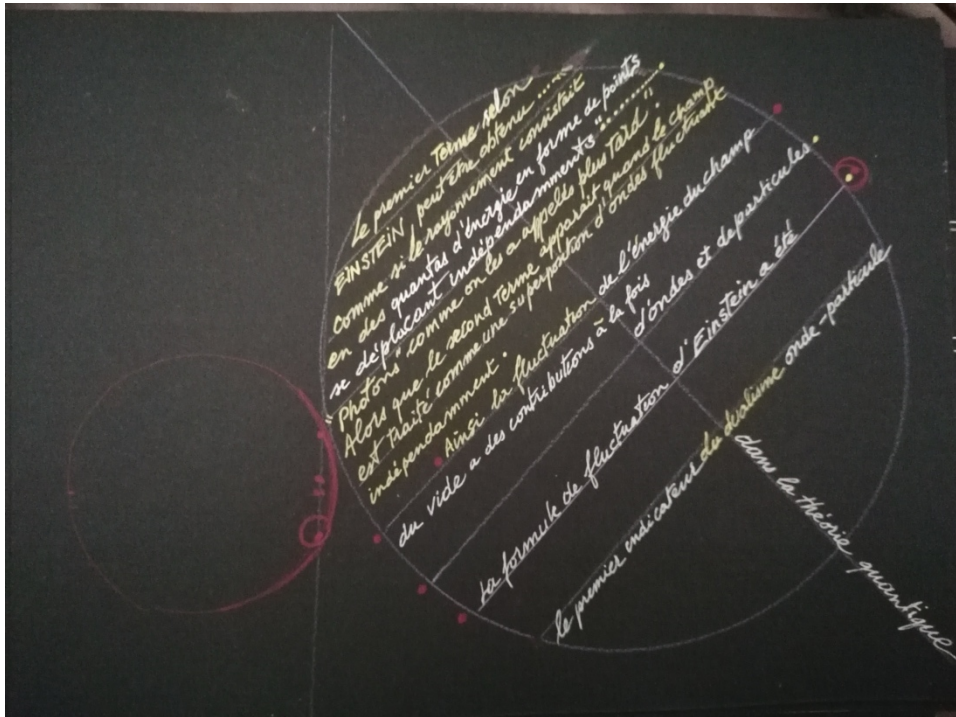 Le premier Terme selon
EINSTEIN, peut être obtenu .....
comme si le rayonnement consistait
en des quantas d'énergie en forme de points
se déplaçant indépendamments ".........
"Photons" comme on les a appelés plus Tard".
Alors que le second Terme apparait quand le champ
est Traité comme une superposition d'ondes fluctuant
indépendamment.
Ainsi la fluctuation de l'énergie du champ
du vide a des contributions à la fois
d'ondes et de particules.
La formule de fluctuation d'Einstein a été
le premier indicateur du dualisme onde-particule
dans la théorie quantique